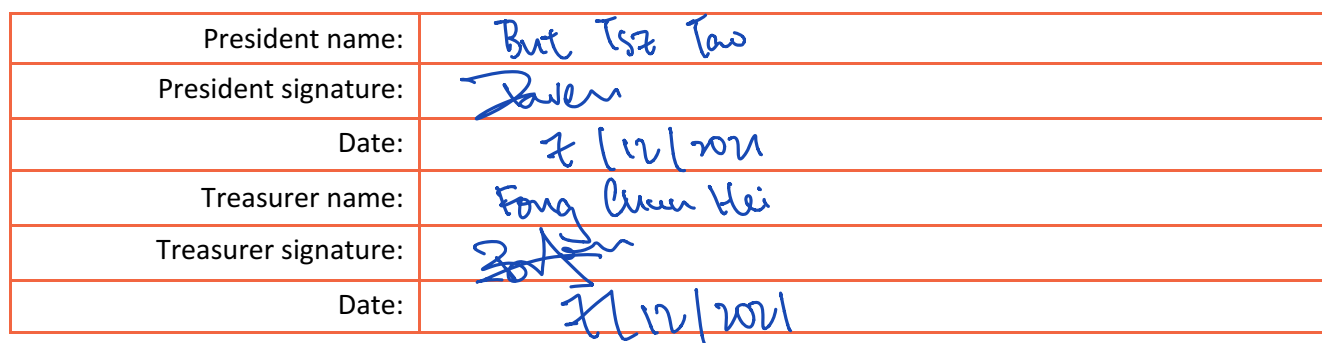 President name: But Tsz Tao
President signature: Daven
Date: 7/12/2021
Treasurer name: Fong Chun Hei
Treasurer signature:
Date: 7/12/2021